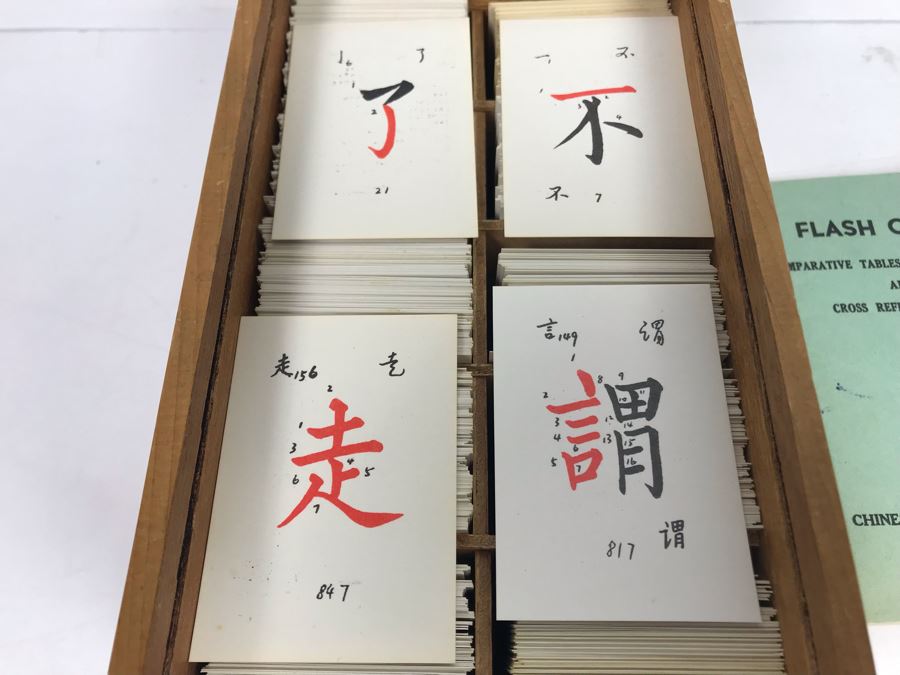 亅6 了
1
2
了
21
一1 不
1 2 3 4
不
不 7
走156 走
2
1
3
4 5
6
7
走
847
言149 谓
1
8 9
2 10 11
3 12 14
4 6 13 15
5 7 16
謂
谓
817
FLASH
TABLES
CROSS